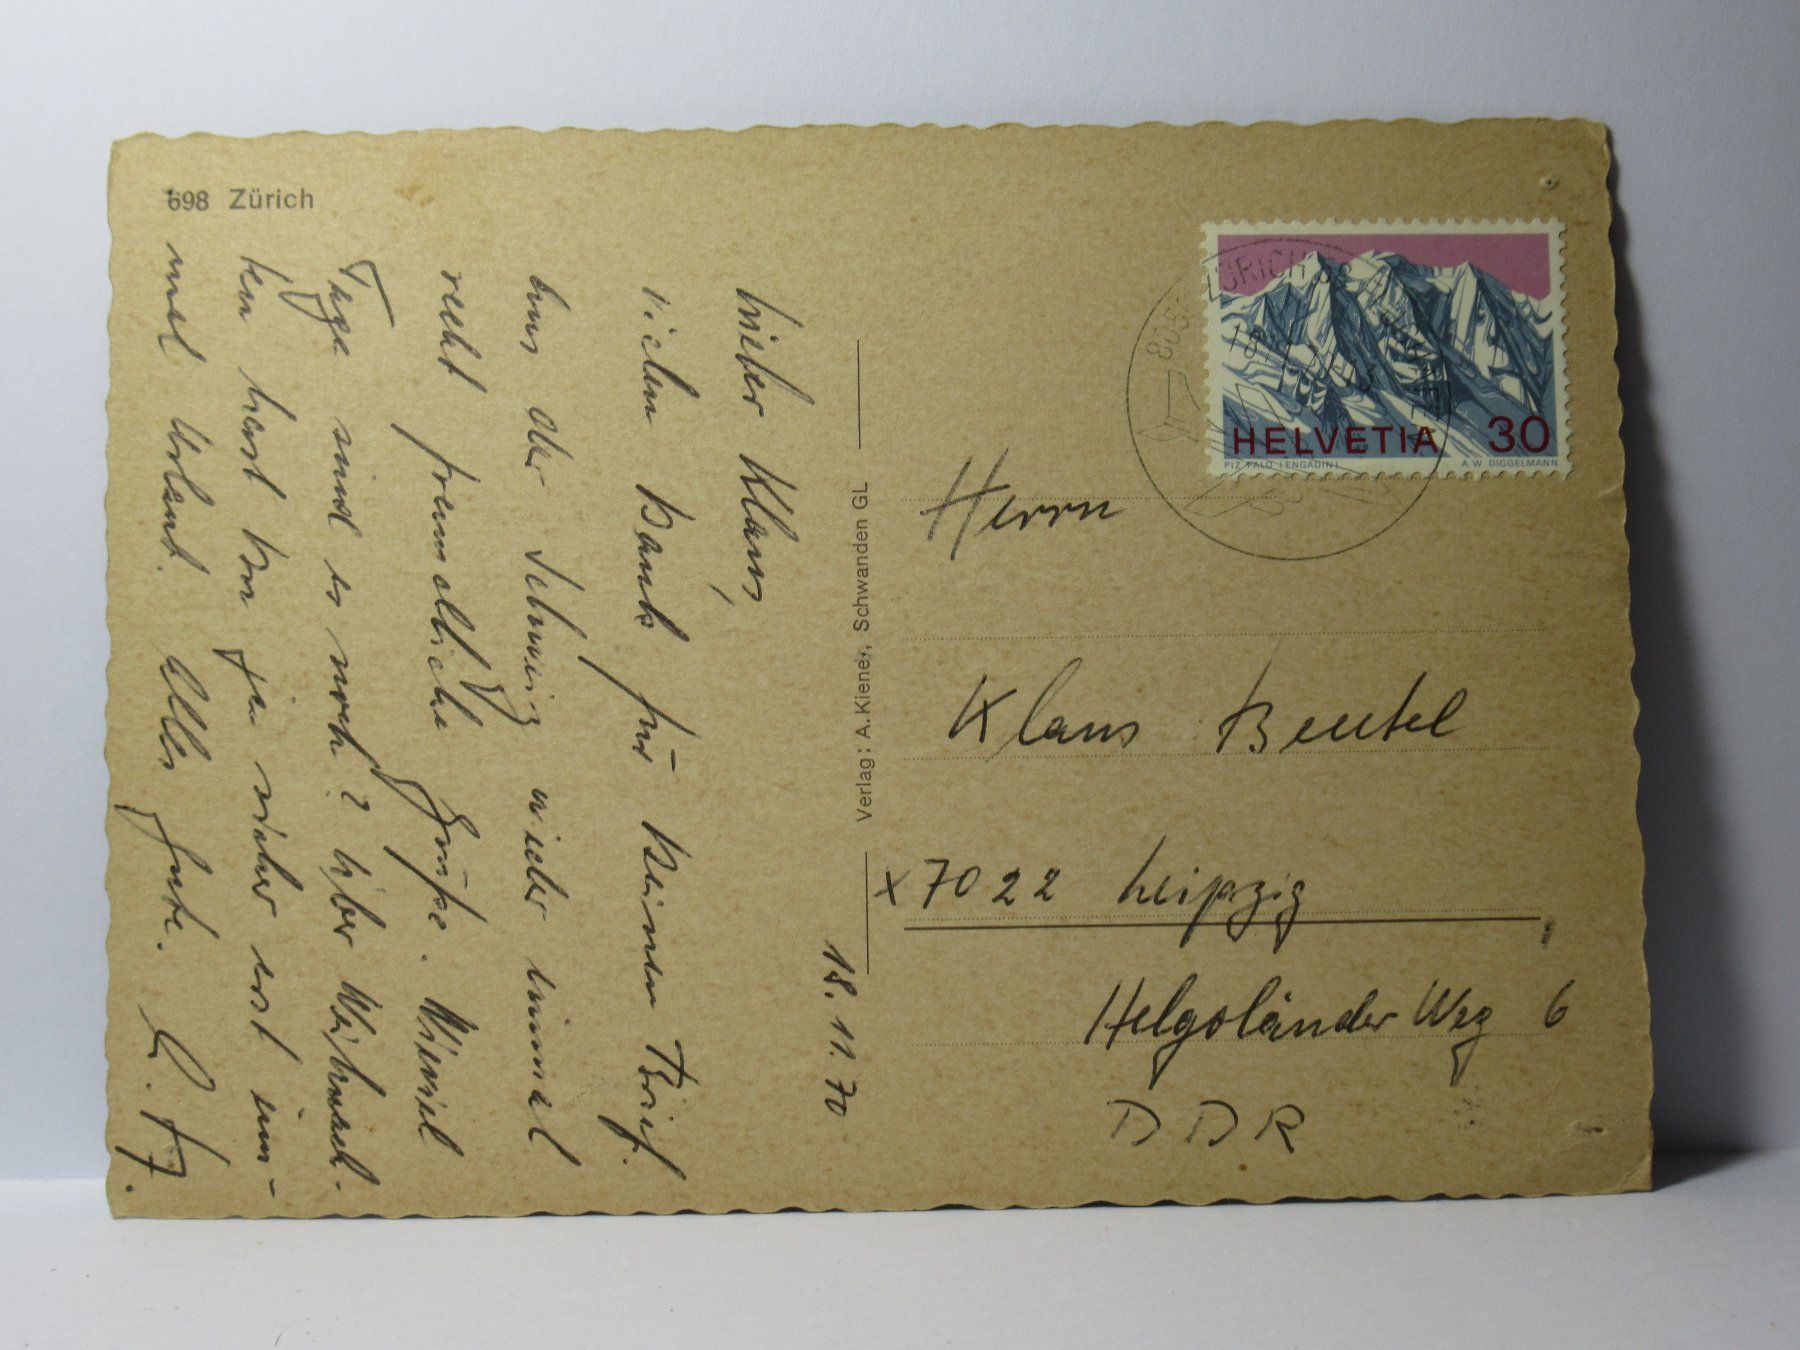 698 Zürich
18. 11. 70
Lieber Klaus,
vielen Dank für Deinen Brief.
Aus der Schweiz wieder einmal
recht freundliche Grüße. Wieviel
Tage sind es noch? Über Weihnach-
ten hast Du ja sicher erst ein-
mal Urlaub. Alles Gute.
Verlag: A. Kiener, Schwanden GL
HELVETIA 30
PIZ PALÜ (ENGADIN) A.W. DIGGELMANN
ZÜRICH
Herrn
Klaus Beutel
x 7022 Leipzig
Helgoländer Weg 6
DDR